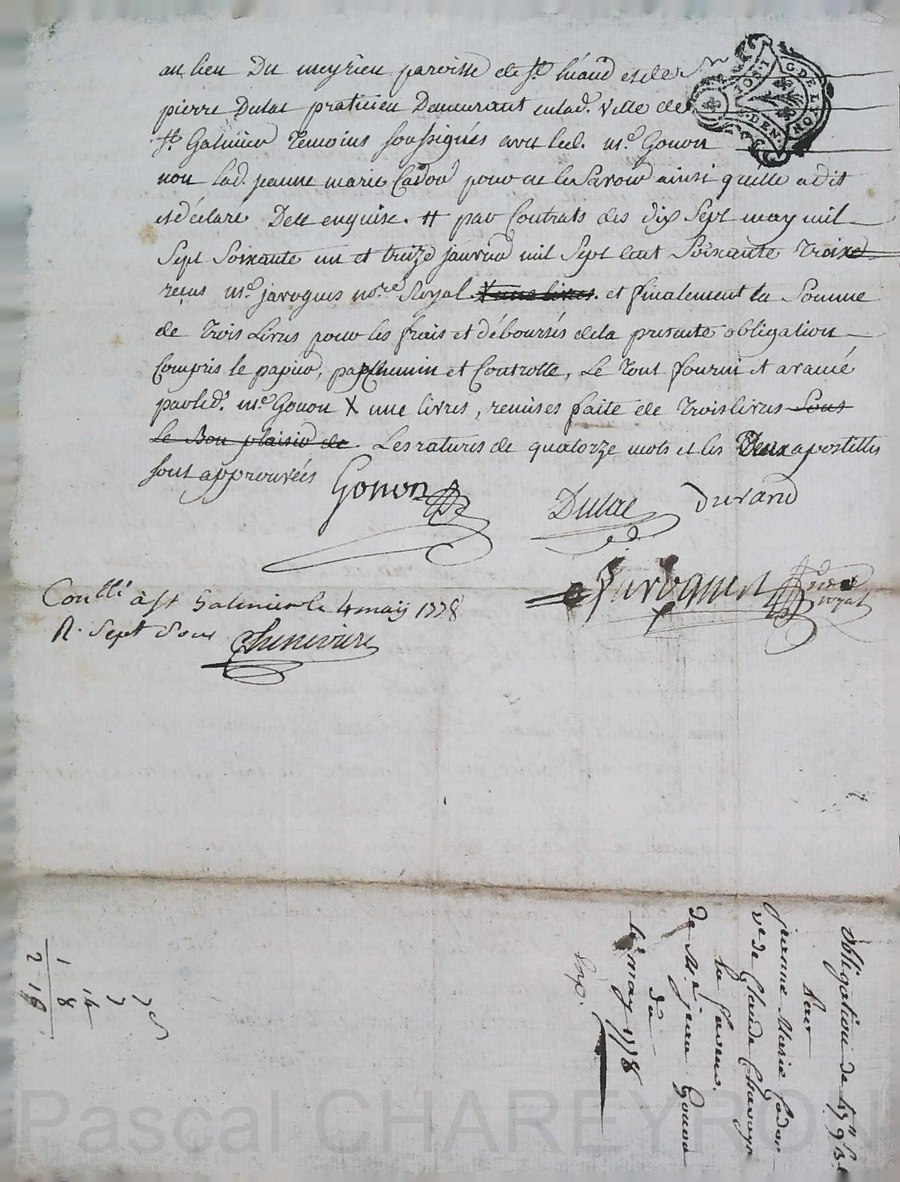 au lieu Du meyrieu paroisse de St héand et de sr
pierre Dulac praticien Demeurant en lad. ville de
St Galmier temoins soussignés avec led. me. Gonon
non lad. jeanne marie Cador pour ne le savoir ainsi quelle a dit
et déclaré De ce enquise. # par Contrats des dix sept may mil
sept soixante un et treize janvier mil sept cent soixante Troixe
reçus me. jarogues nore. Royal X une livres. et finalement la somme
de trois Livres pour les frais et déboursés de la presente obligation
compris le papier, parchemin et Controlle, Le Tout fourni et avancé
par led. me. Gonon X une livres, remises faite de trois livres sous
le Bon plaisir de. Les ratures de quatorze mots et les Deux apostilles
sont approuvées
Gonon
Dulac
durand
nore royal
Conllé à St Galmier le 4 may 1778
R. sept sous
Cheneviere
G. DE LYON
DEN.
obligation de
pour
jeanne Marie Cador
ve de Claude
La faveur
de M. e jean Gonon
du
may 1778
Exp.
7 5
7
14
1 8
2 18
Pascal CHAREYRON